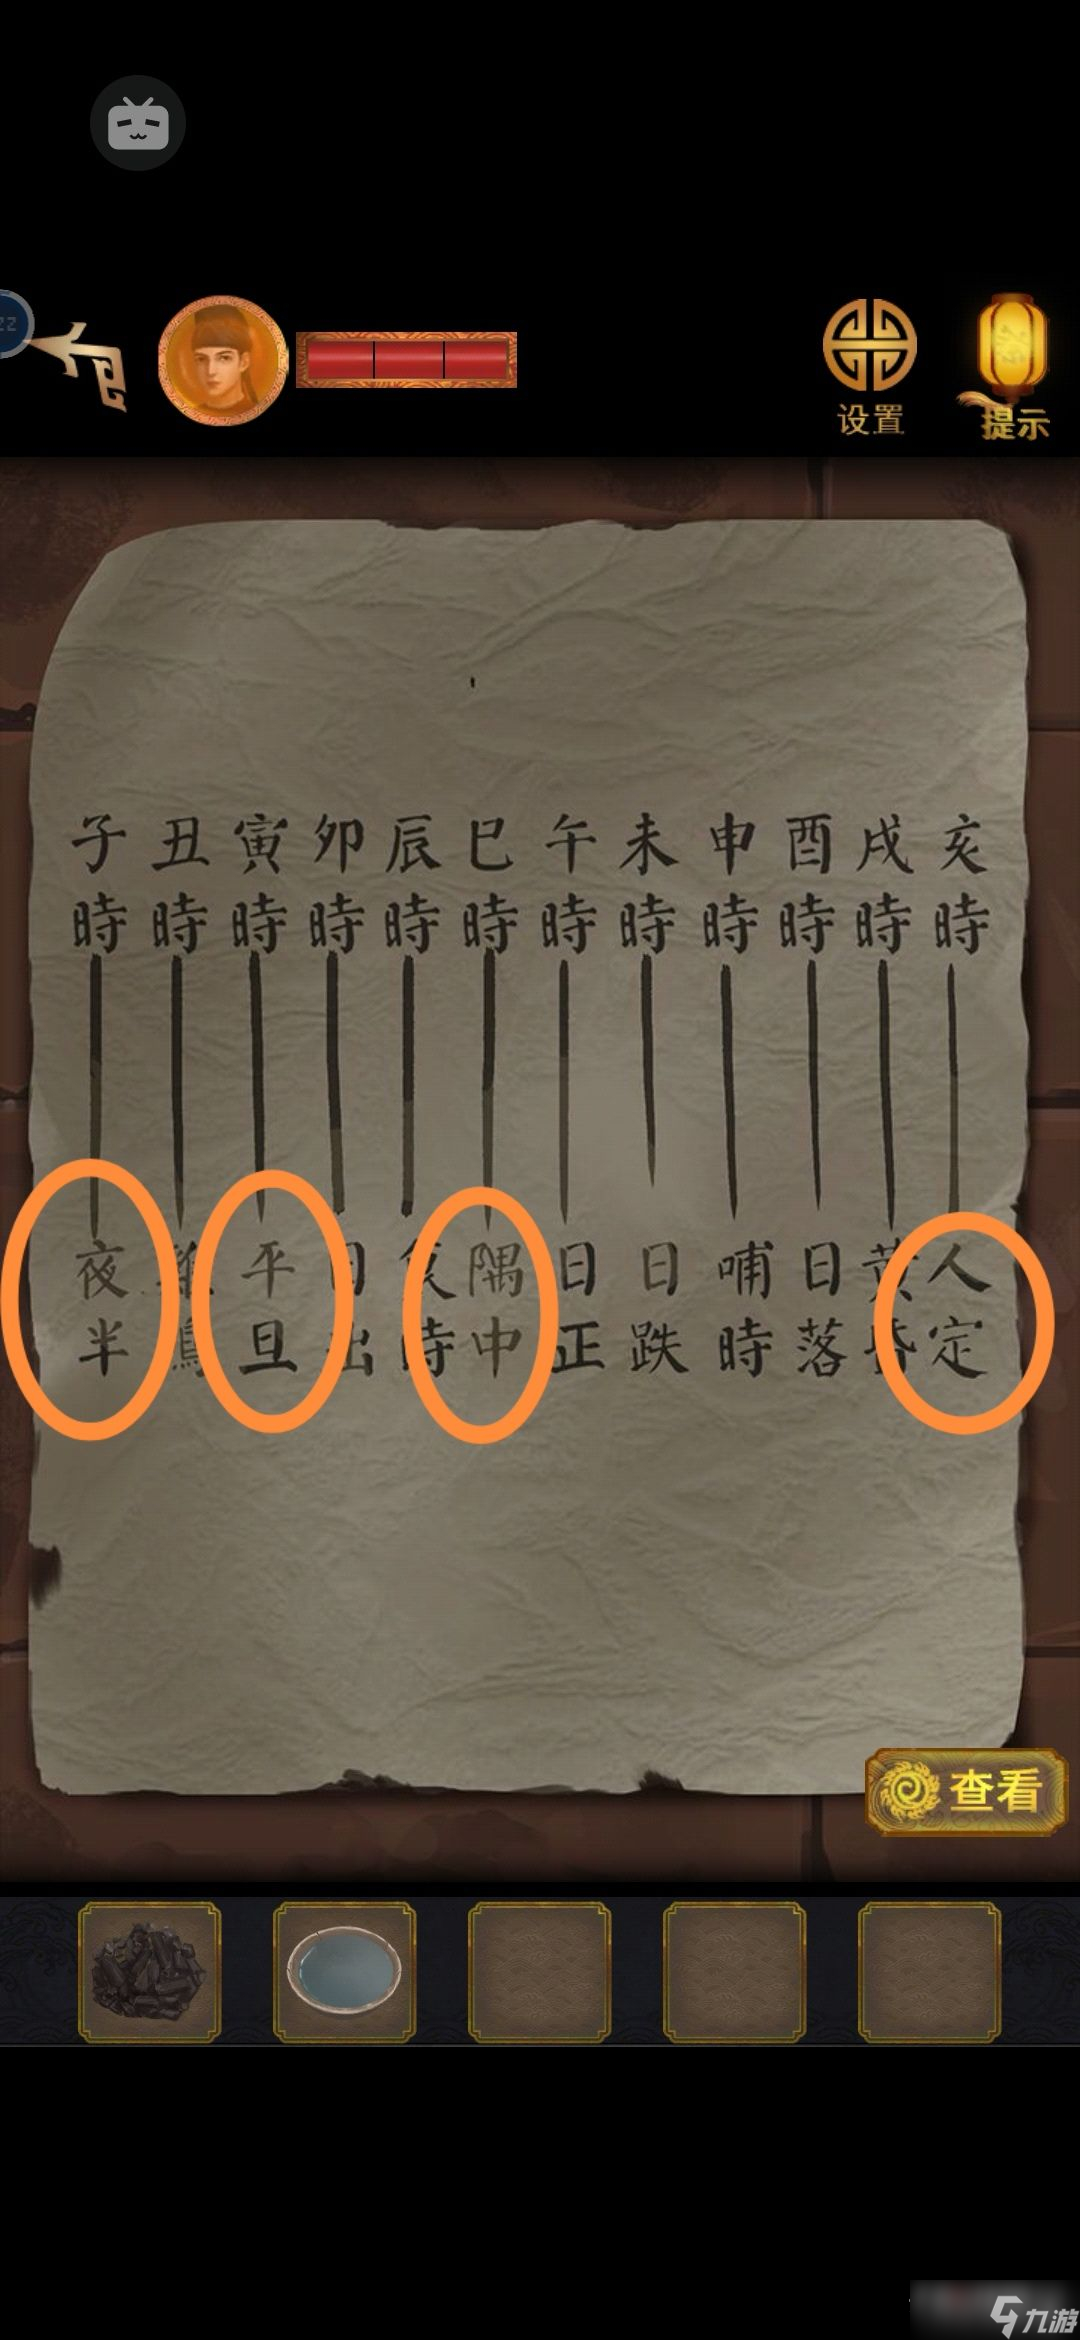 22
设置
提示
子丑寅卯辰巳午未申酉戌亥
時時時時時時時時時時時時
夜 平日食隅日日哺日黄人
半 旦出時中正跌時落昏定
查看
九游